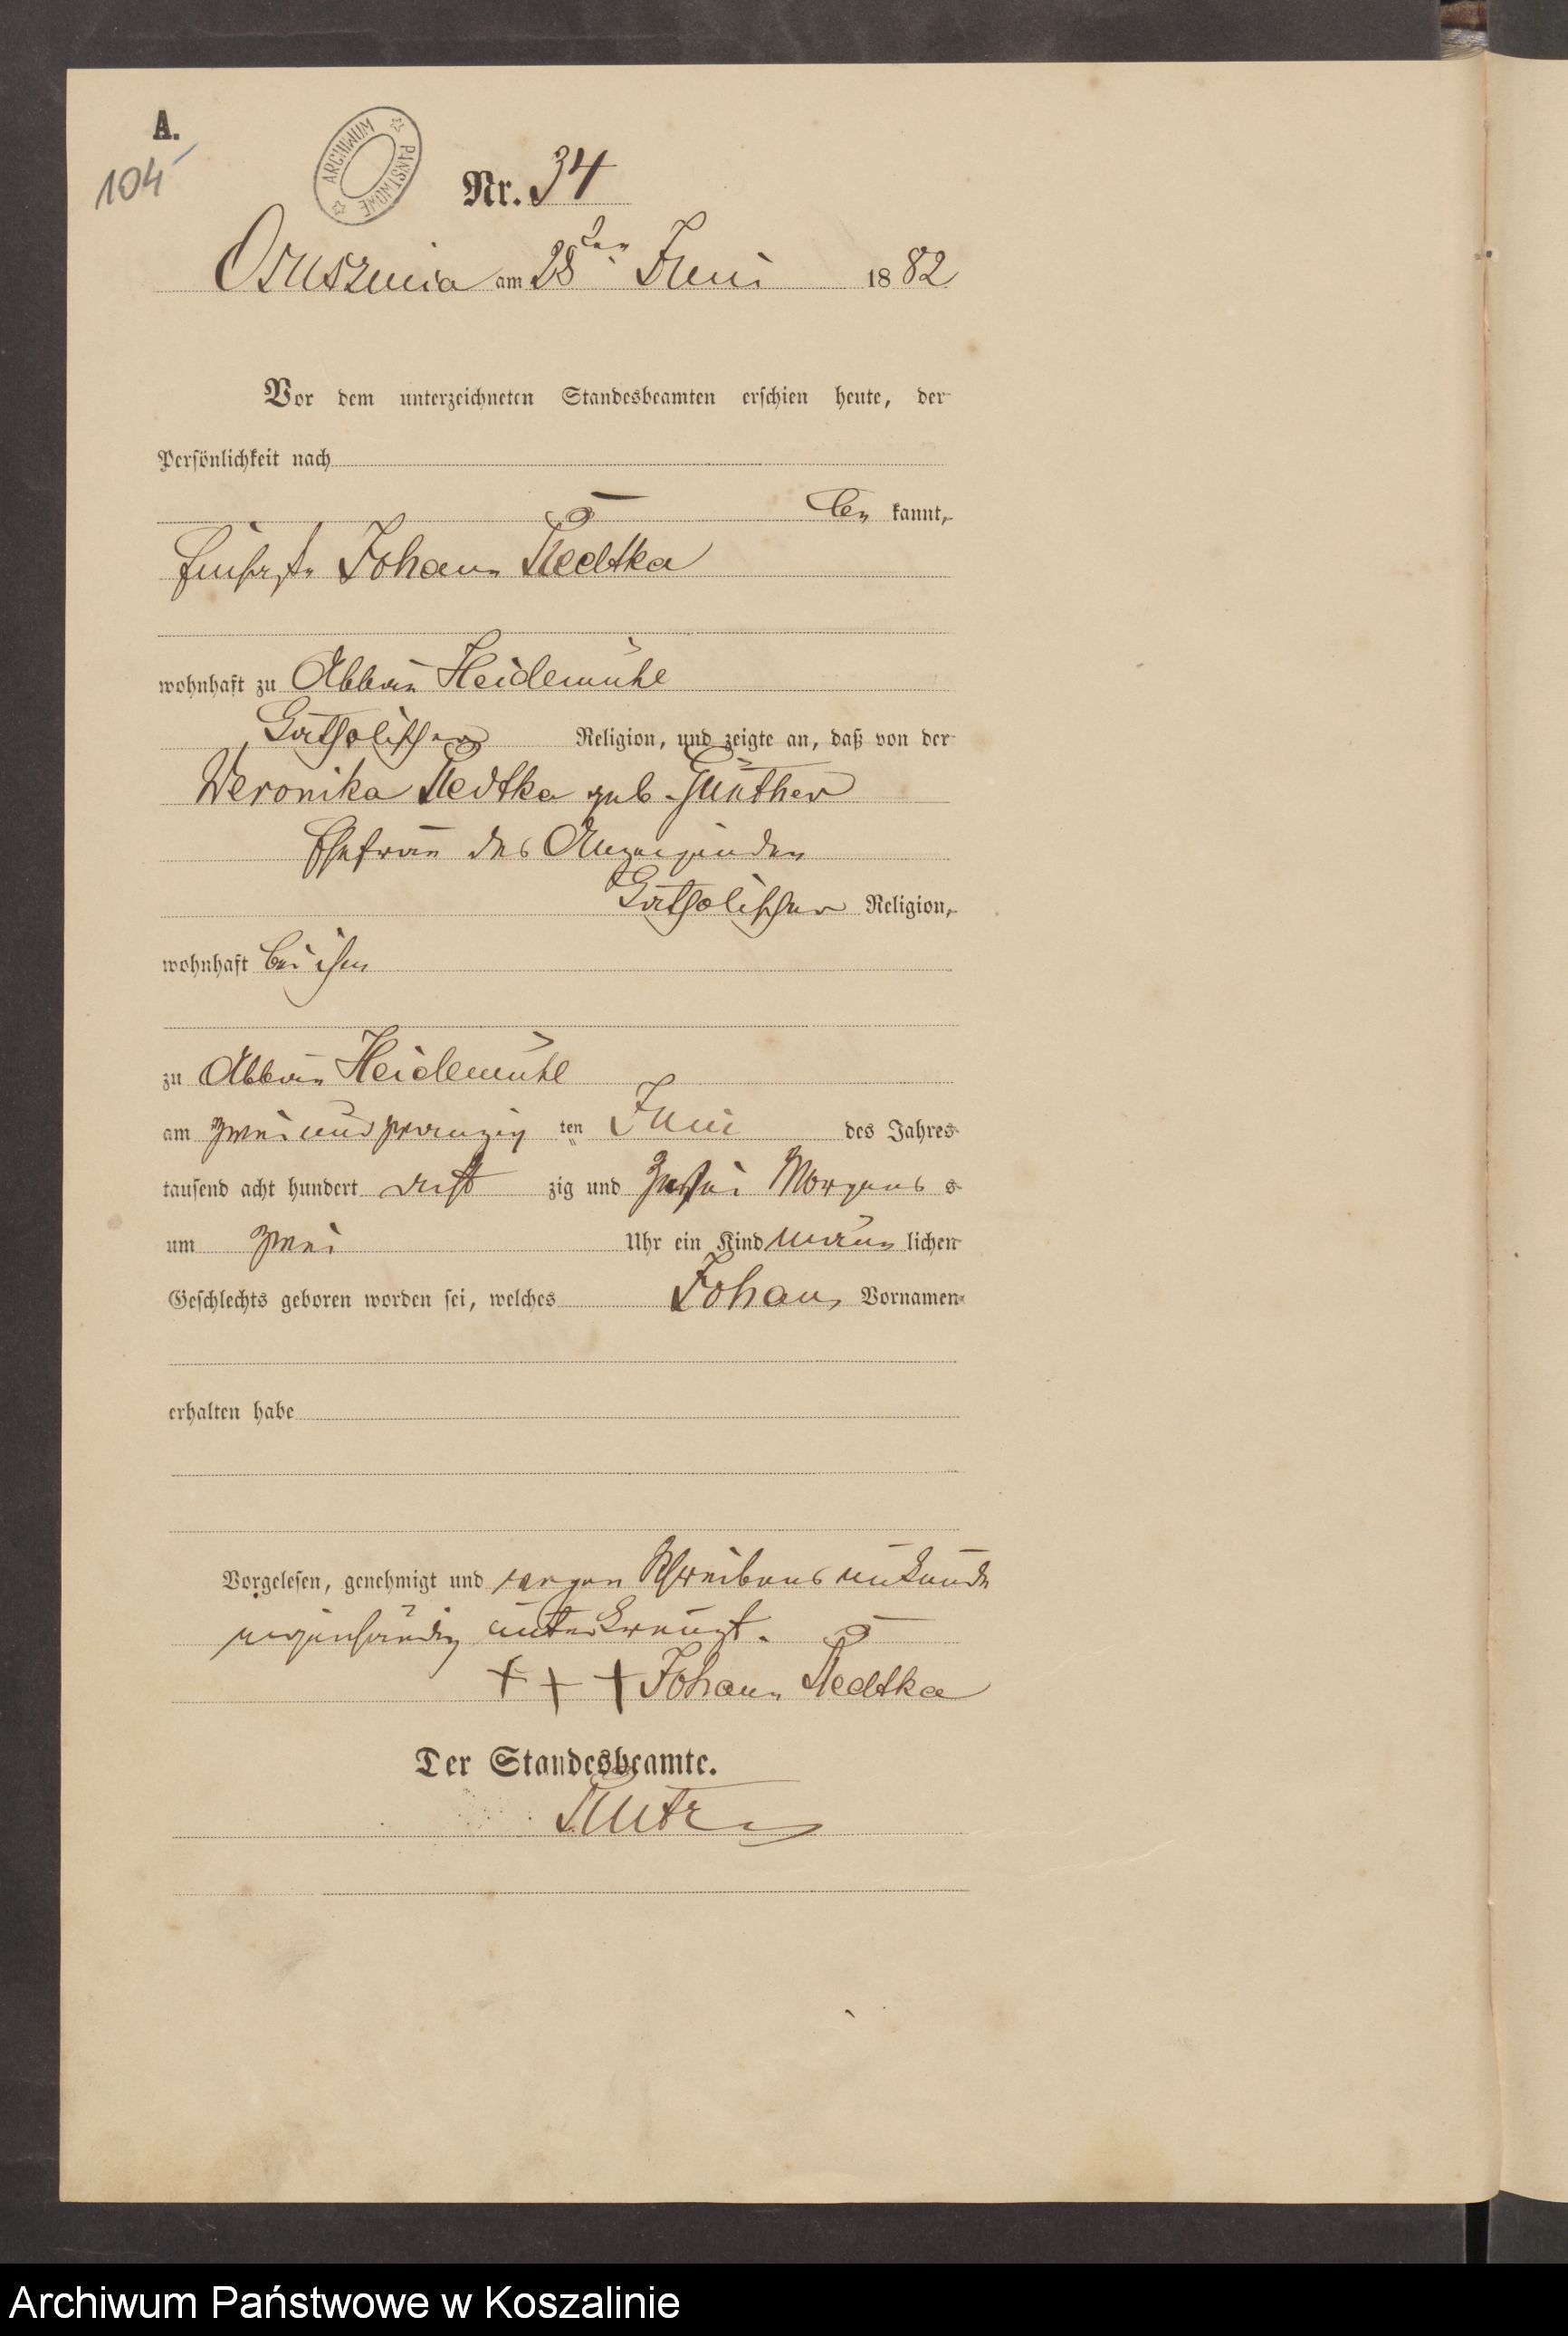 A.
104
ARCHIWUM PAŃSTWOWE
Nr. 34
Osuszniza am 28ten Juni 1882
Vor dem unterzeichneten Standesbeamten erschien heute, der
Persönlichkeit nach
be kannt,
Johann Redtka
wohnhaft zu Abbau Heidemühl
Catholischer Religion, und zeigte an, daß von der
Weronika Redtka geb. Günther
Ehefrau des Anzeigenden
Catholischer Religion,
wohnhaft bei ihm
zu Abbau Heidemühl
am zwei und zwanzig ten Juni des Jahres
tausend acht hundert acht zig und zwei Morgens s
um zwei Uhr ein Kind männ lichen
Geschlechts geboren worden sei, welches Johann Vornamen
erhalten habe
Vorgelesen, genehmigt und wegen Schreibens unkunde
eigenhändig unterkreuzt.
+ + + Johann Redtka
Der Standesbeamte.
Archiwum Państwowe w Koszalinie